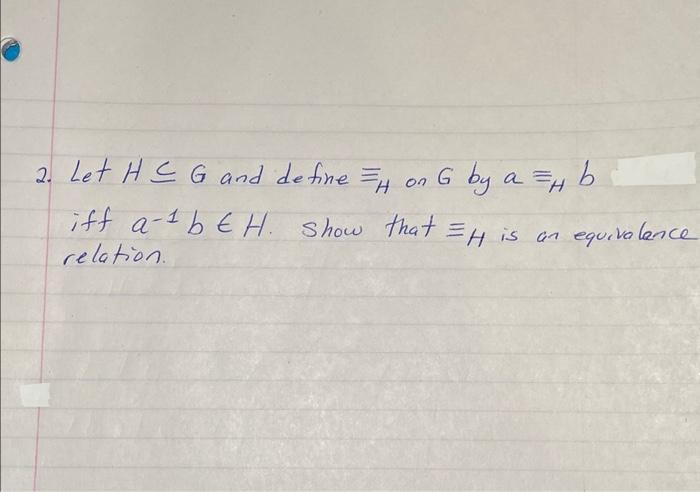 2. Let H ⊆ G and define ≡_H on G by a ≡_H b
iff a^-1 b ∈ H. Show that ≡_H is an equivalence
relation.